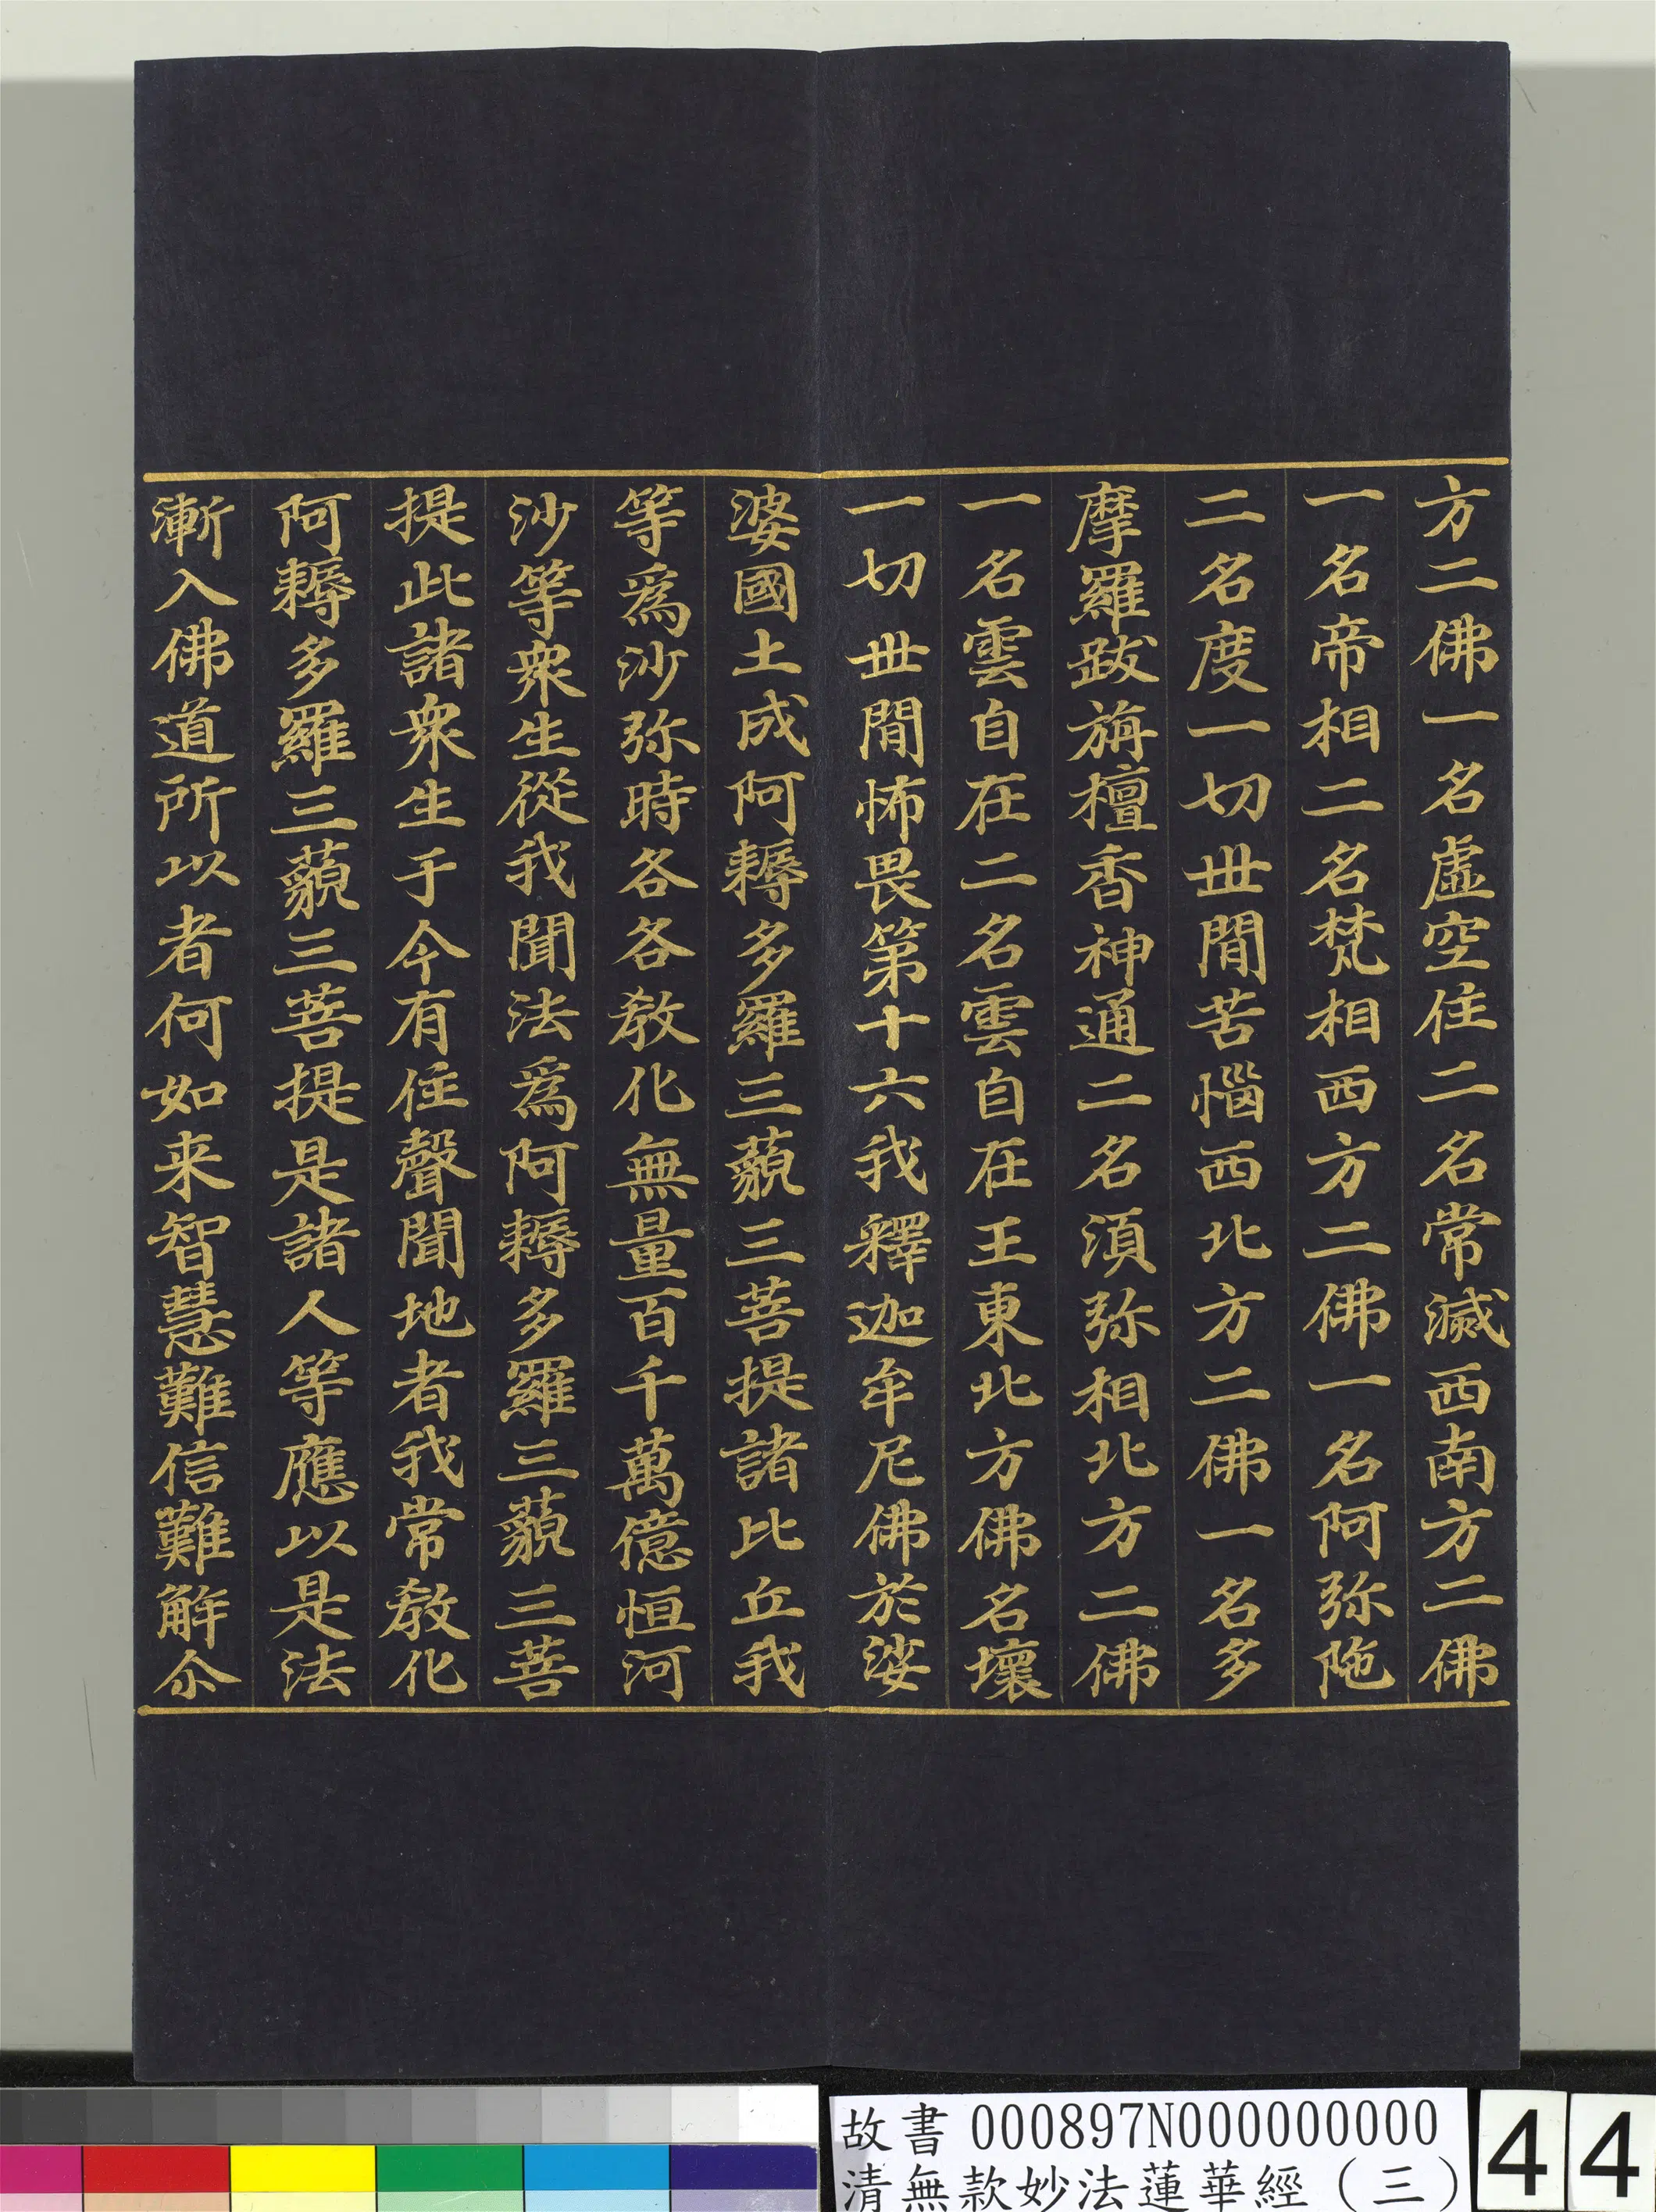 方二佛一名虛空住二名常滅西南方二佛
一名帝相二名梵相西方二佛一名阿弥陁
二名度一切世閒苦惱西北方二佛一名多
摩羅跋旃檀香神通二名須弥相北方二佛
一名雲自在二名雲自在王東北方佛名壞
一切世閒怖畏第十六我釋迦牟尼佛於娑
婆國土成阿耨多羅三藐三菩提諸比丘我
等爲沙弥時各各教化無量百千萬億恒河
沙等衆生從我聞法爲阿耨多羅三藐三菩
提此諸衆生于今有住聲聞地者我常教化
阿耨多羅三藐三菩提是諸人等應以是法
漸入佛道所以者何如来智慧難信難解尒
故書 000897N000000000
清無款妙法蓮華經（三）
44